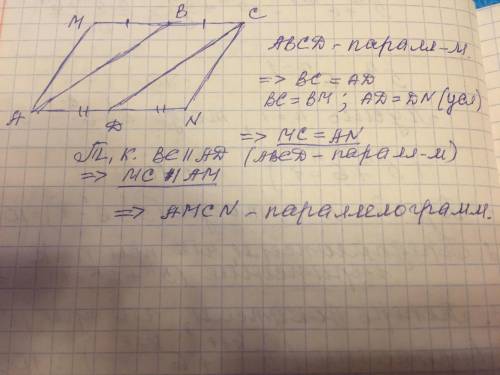 M B C
A D N
ABCD - паралл-м.
=> BC = AD
BC = BM; AD = DN (усл)
=> MC = AN
Т, к. BC || AD (ABCD - паралл-м)
=> MC || AM
=> AMCN - параллелограмм.